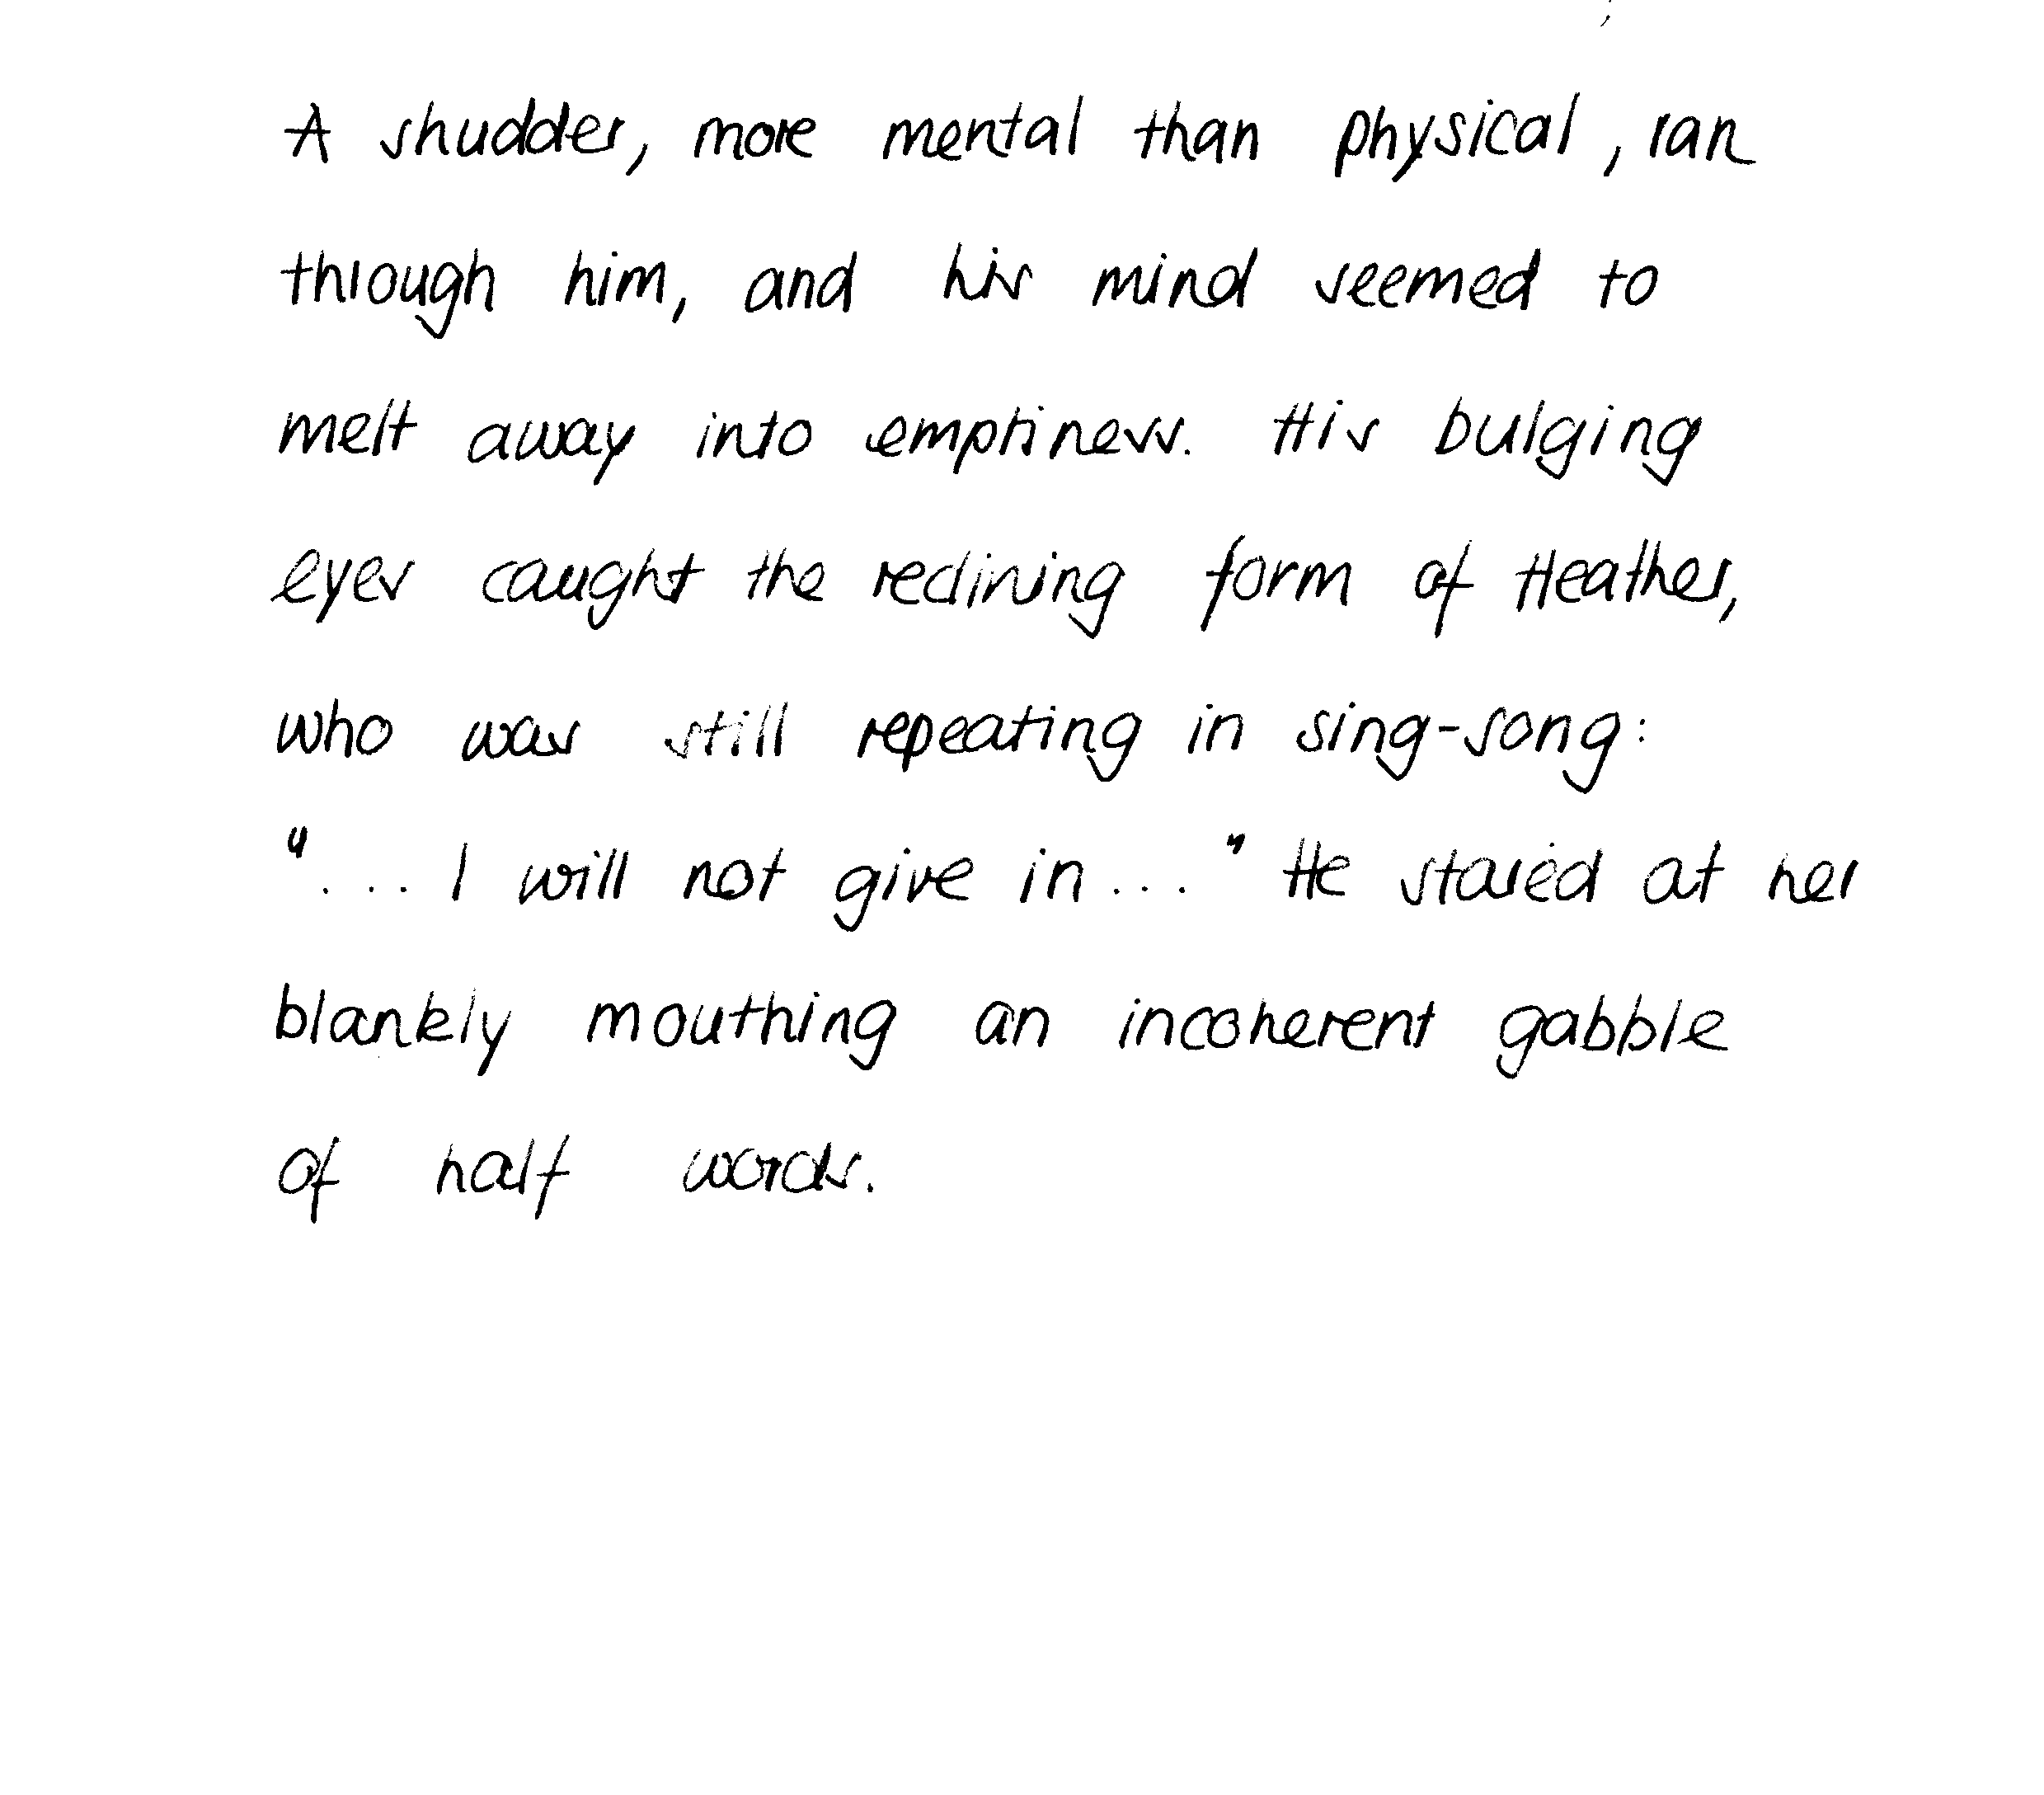 A shudder, more mental than physical, ran
through him, and his mind seemed to
melt away into emptiness. His bulging
eyes caught the reclining form of Heather,
who was still repeating in sing-song:
"... I will not give in..." He stared at her
blankly mouthing an incoherent gabble
of half words.